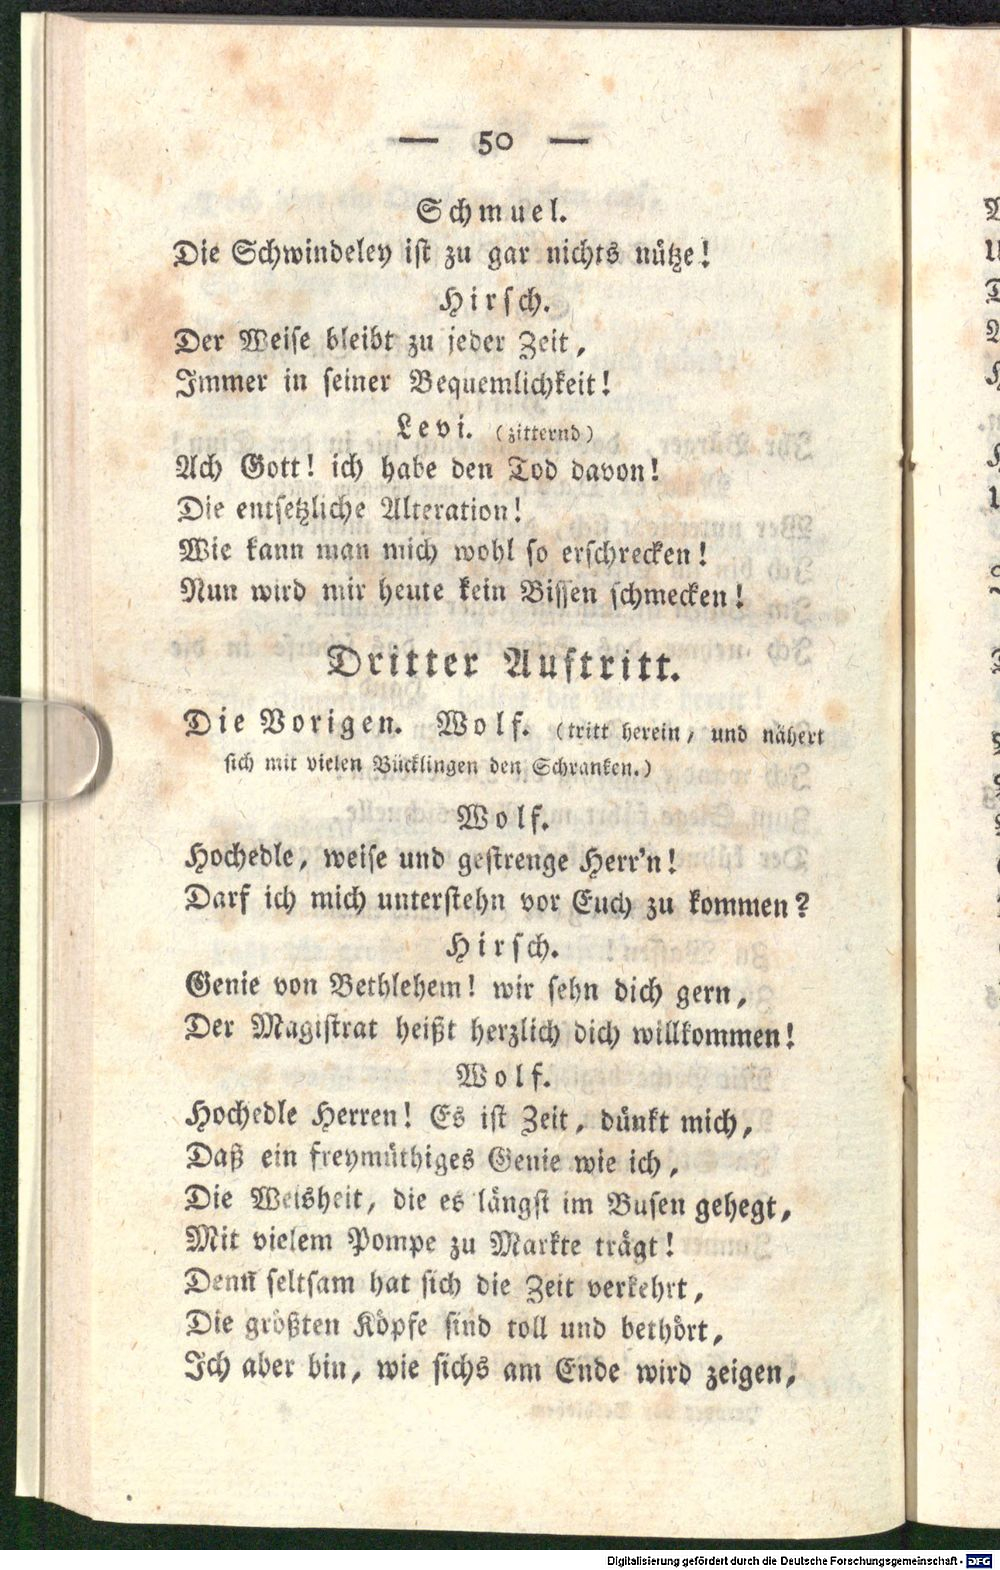 — 50 —
Schmuel.
Die Schwindeley ist zu gar nichts nütze!
Hirsch.
Der Weise bleibt zu jeder Zeit,
Immer in seiner Bequemlichkeit!
Levi. (zitternd)
Ach Gott! ich habe den Tod davon!
Die entsetzliche Alteration!
Wie kann man mich wohl so erschrecken!
Nun wird mir heute kein Bissen schmecken!
Dritter Auftritt.
Die Vorigen. Wolf. (tritt herein, und nähert
sich mit vielen Bücklingen den Schranken.)
Wolf.
Hochedle, weise und gestrenge Herr'n!
Darf ich mich unterstehn vor Euch zu kommen?
Hirsch.
Genie von Bethlehem! wir sehn dich gern,
Der Magistrat heißt herzlich dich willkommen!
Wolf.
Hochedle Herren! Es ist Zeit, dünkt mich,
Daß ein freymüthiges Genie wie ich,
Die Weisheit, die es längst im Busen gehegt,
Mit vielem Pompe zu Markte trägt!
Denn̄ seltsam hat sich die Zeit verkehrt,
Die größten Köpfe sind toll und bethört,
Ich aber bin, wie sichs am Ende wird zeigen,
Digitalisierung gefördert durch die Deutsche Forschungsgemeinschaft - DFG